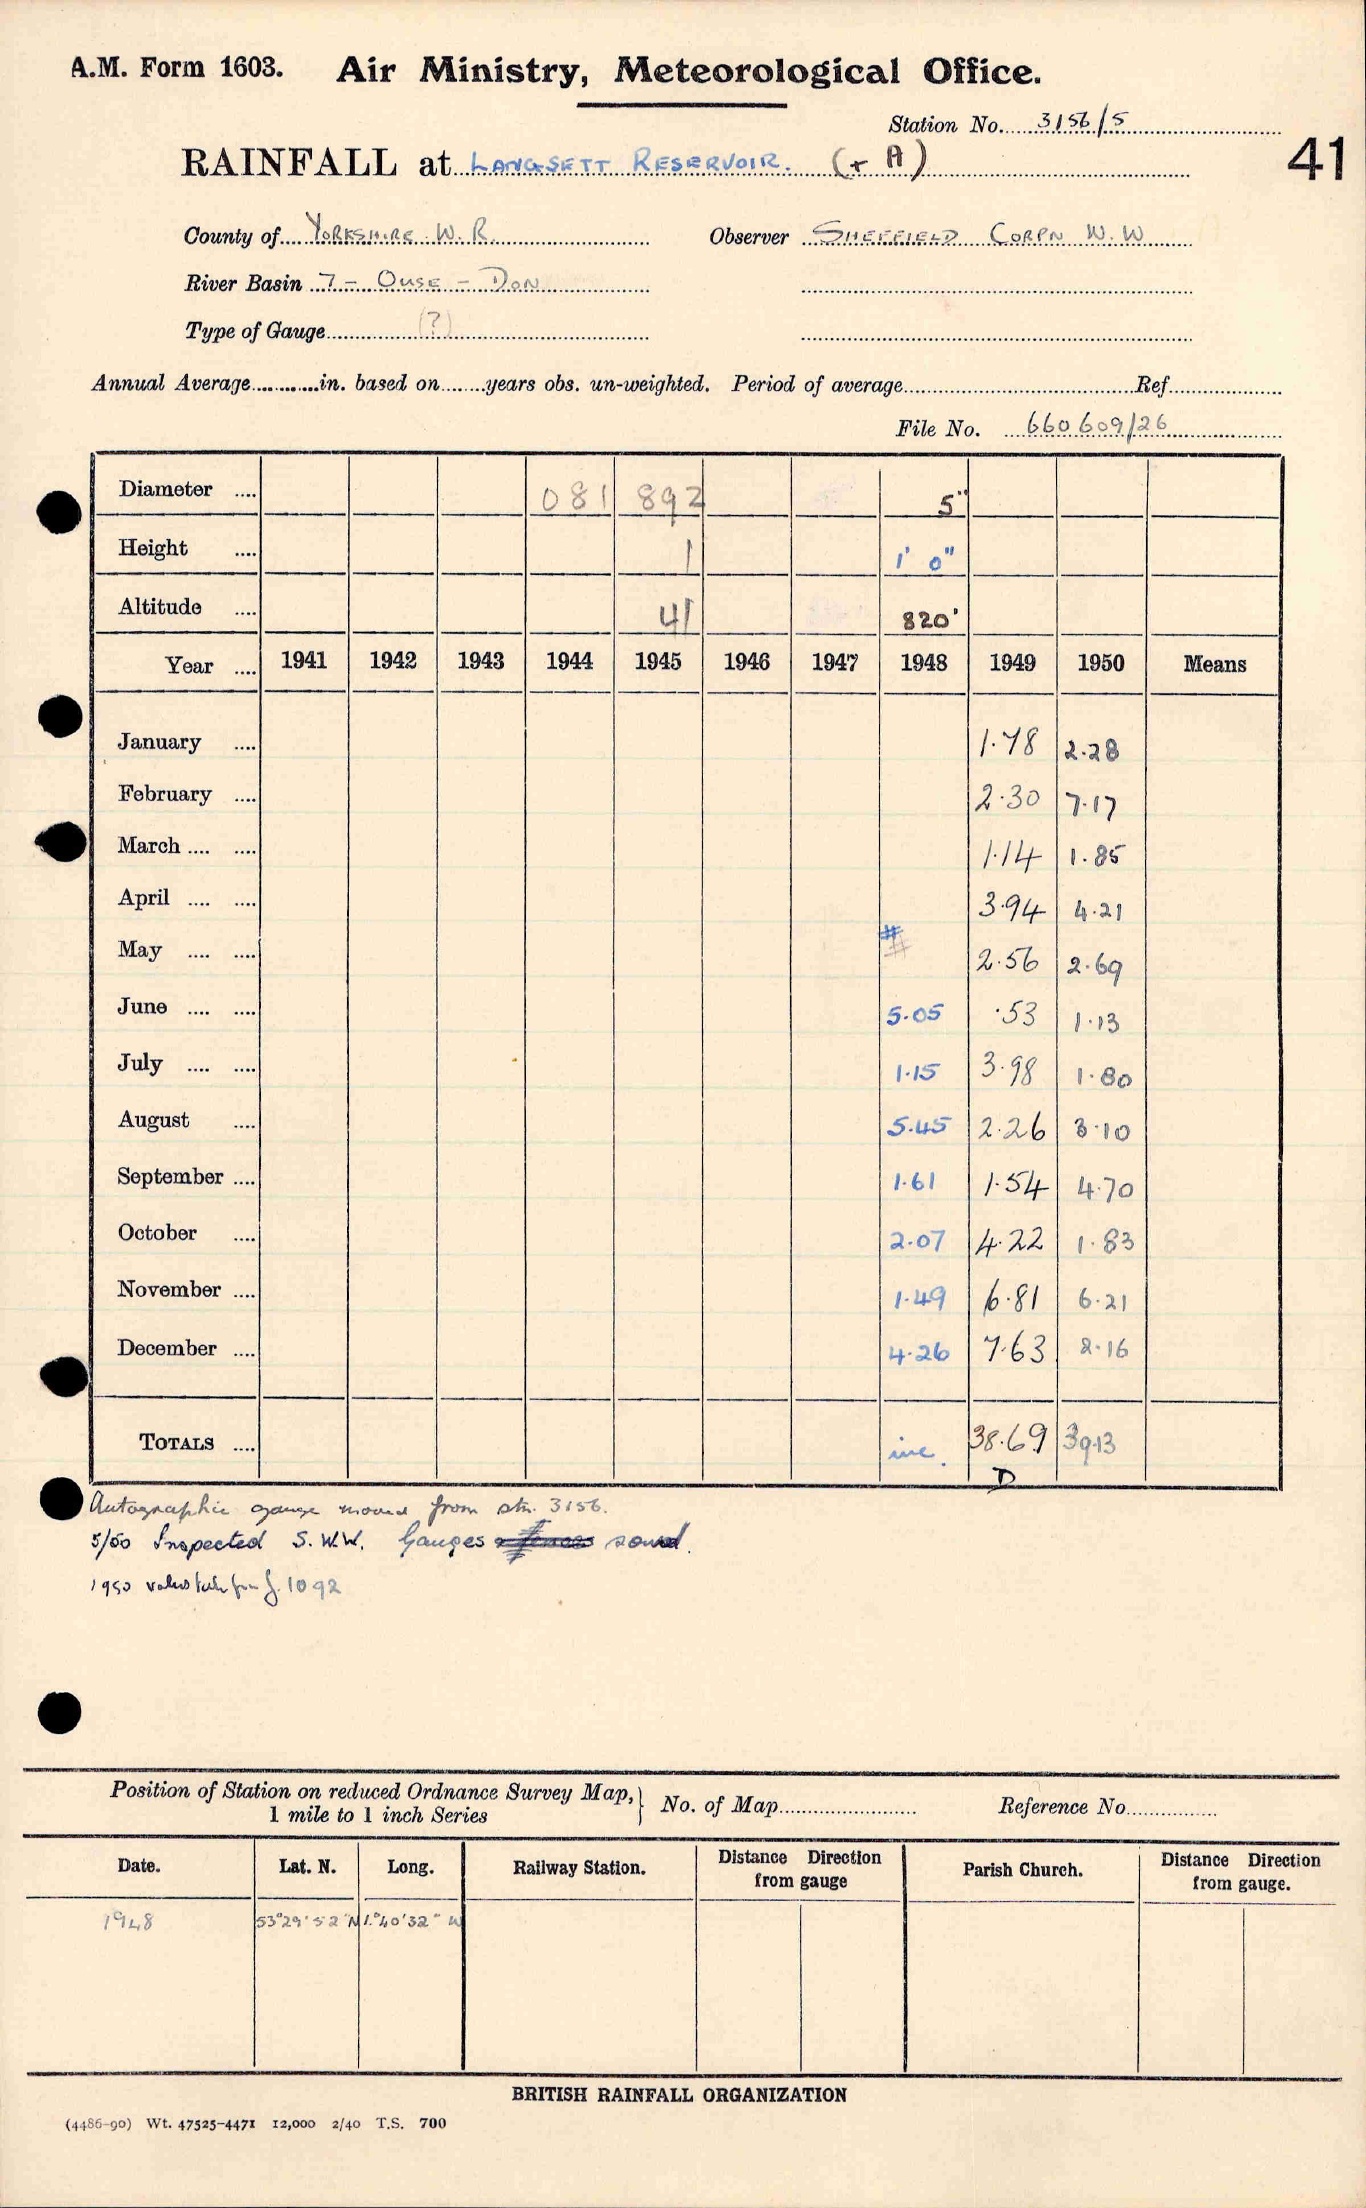 A.M. Form 1603. Air Ministry, Meteorological Office.
Station No. 3156/5
41
RAINFALL at LANGSETT RESERVOIR. (+ A)
County of YORKSHIRE W.R. Observer SHEFFIELD CORPN W.W
River Basin 7 - OUSE - DON
Type of Gauge (?)
Annual Average in. based on years obs. un-weighted. Period of average Ref
File No. 660609/26
Diameter 081 892 5"
Height 1 1' 0"
Altitude 41 820'
Year 1941 1942 1943 1944 1945 1946 1947 1948 1949 1950 Means
January 1.78 2.28
February 2.30 7.17
March 1.14 1.85
April 3.94 4.21
May # # 2.56 2.69
June 5.05 .53 1.13
July 1.15 3.98 1.80
August 5.45 2.26 3.10
September 1.61 1.54 4.70
October 2.07 4.22 1.83
November 1.49 6.81 6.21
December 4.26 7.63 2.16
TOTALS inc. 38.69 39.13
D
Autographic gauge moved from stn. 3156.
5/50 Inspected S.W.W. Gauges sound.
1950 values from f. 1092
Position of Station on reduced Ordnance Survey Map, } No. of Map Reference No
1 mile to 1 inch Series
Date. Lat. N. Long. Railway Station. Distance Direction from gauge Parish Church. Distance Direction from gauge.
1948 53°29'52"N 1°40'32" W
BRITISH RAINFALL ORGANIZATION
(4486-90) Wt. 47525-4471 12,000 2/40 T.S. 700